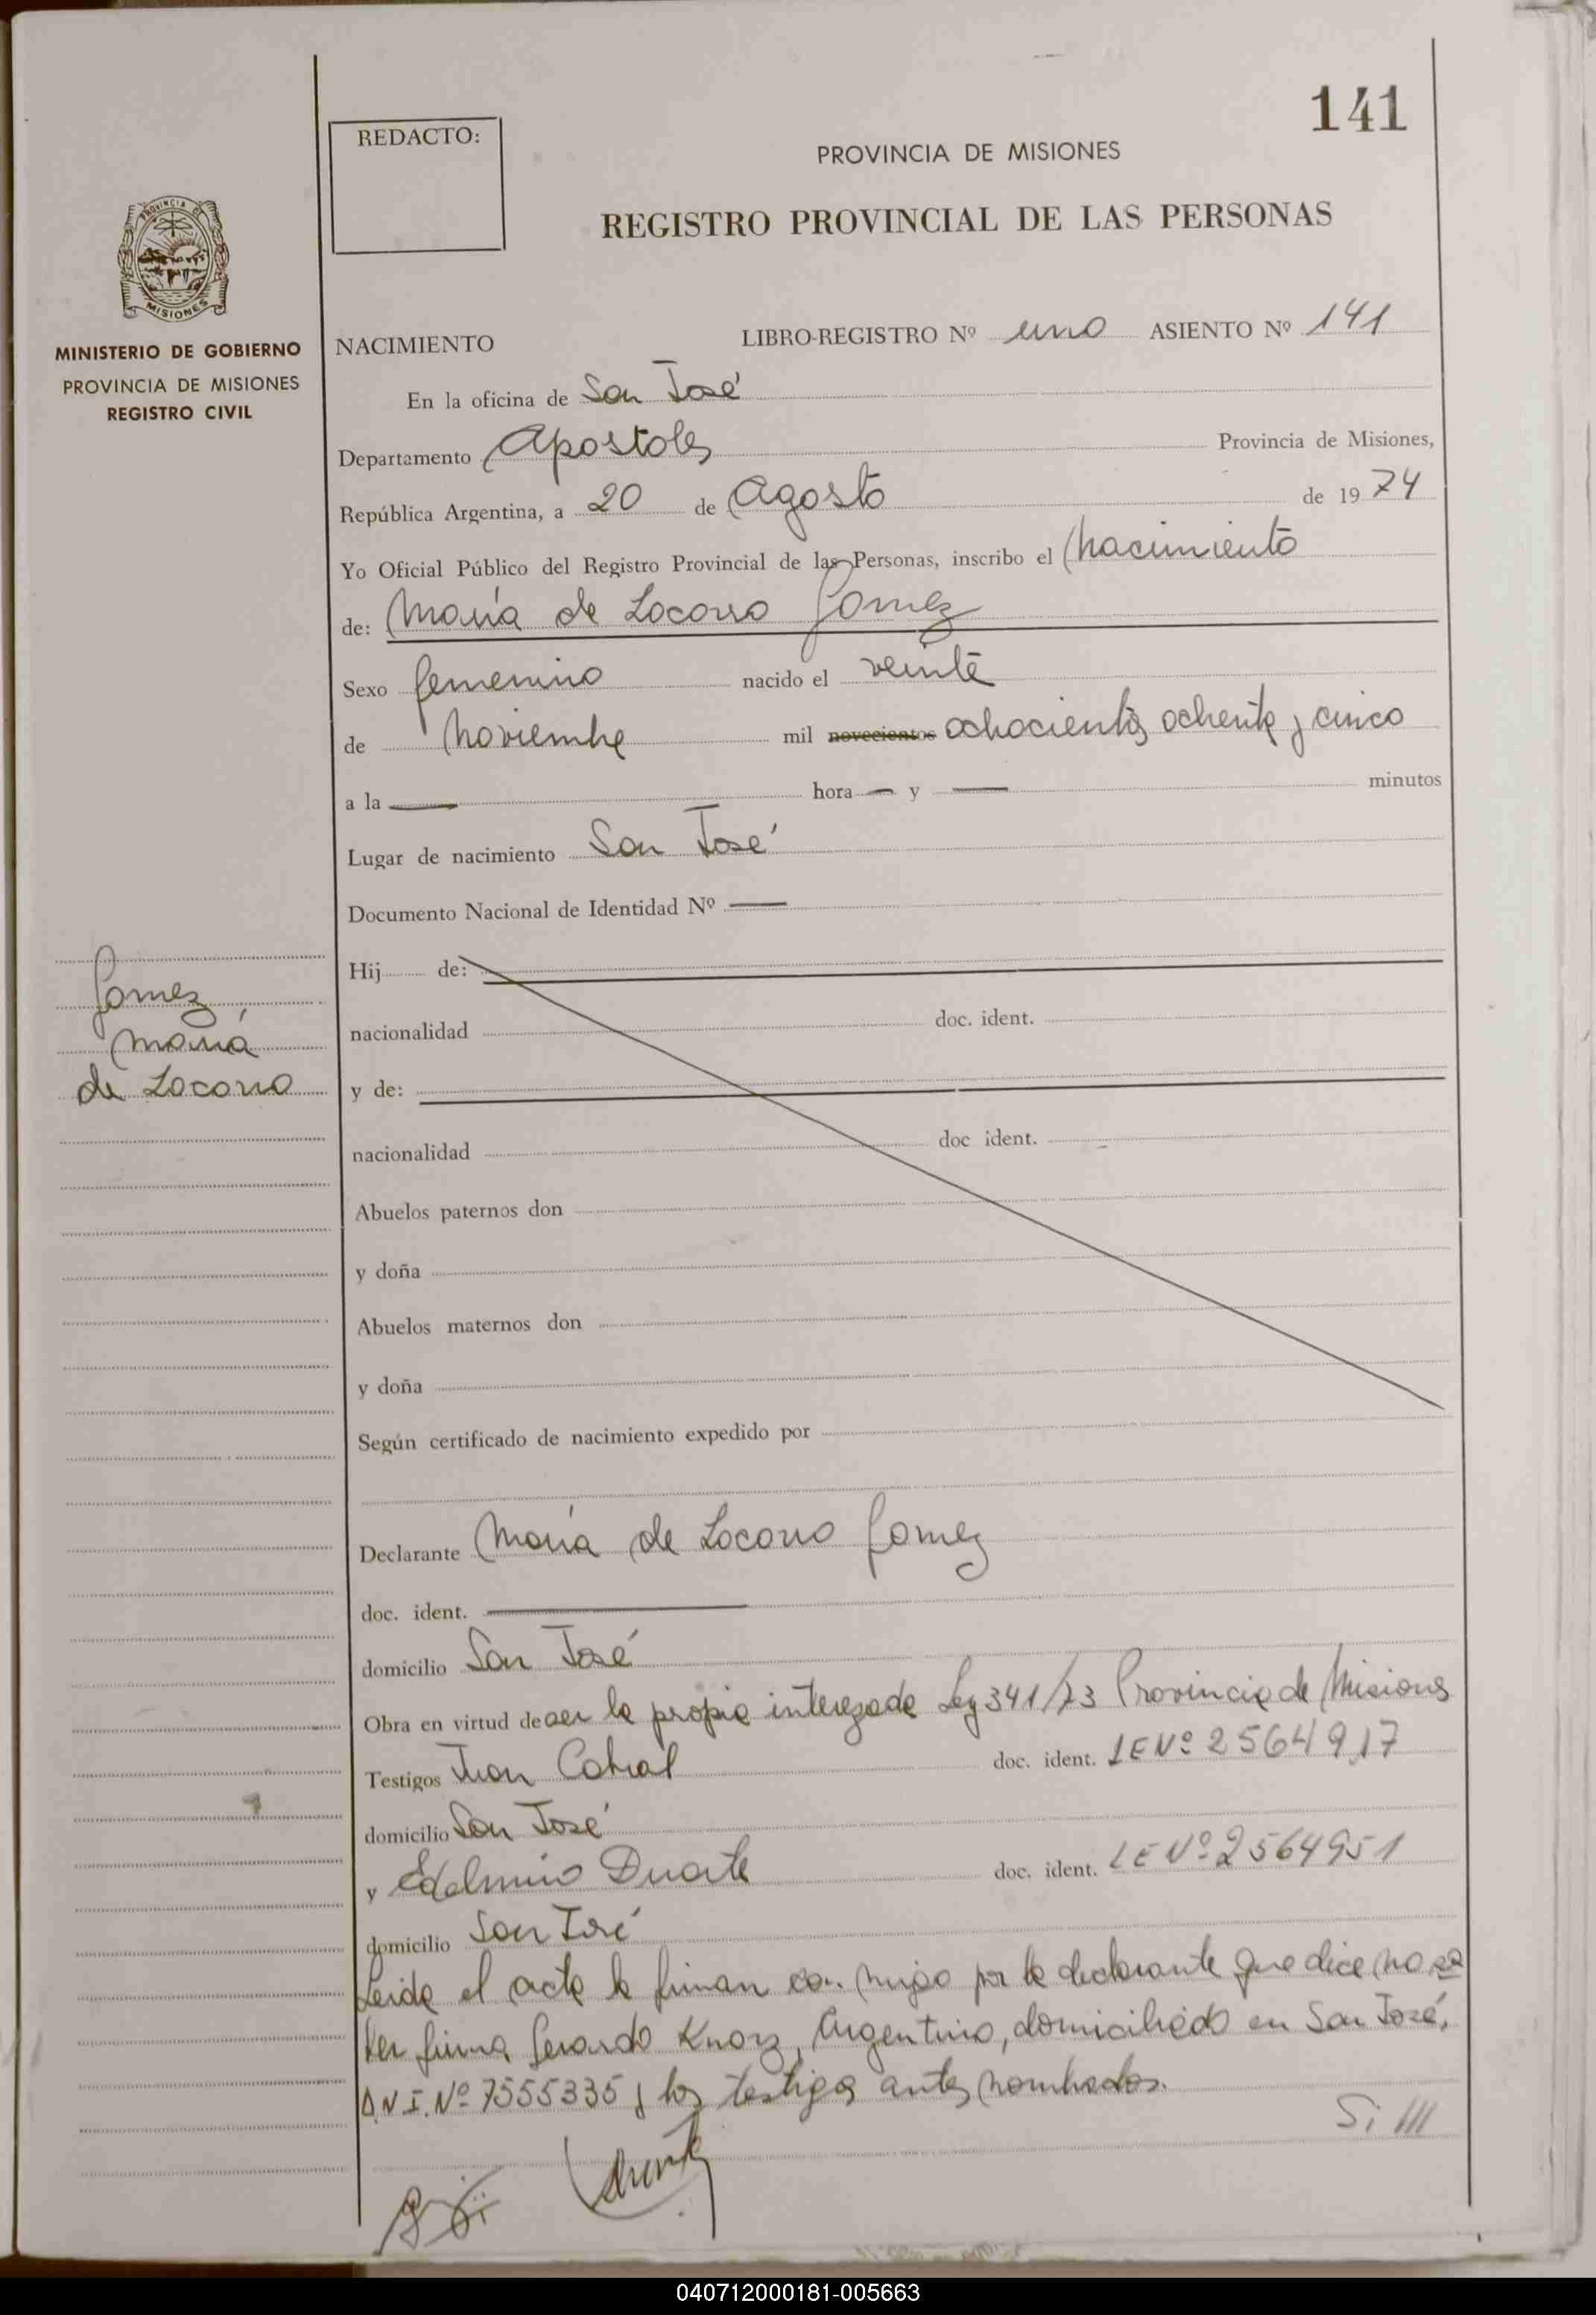 141
REDACTO:
PROVINCIA DE MISIONES
REGISTRO PROVINCIAL DE LAS PERSONAS
PROVINCIA DE
MISIONES
MINISTERIO DE GOBIERNO
PROVINCIA DE MISIONES
REGISTRO CIVIL
NACIMIENTO LIBRO-REGISTRO Nº uno ASIENTO Nº 141
En la oficina de San José
Departamento Apostoles Provincia de Misiones,
República Argentina, a 20 de Agosto de 1974
Yo Oficial Público del Registro Provincial de las Personas, inscribo el Nacimiento
de: María de Locorro Gomez
Sexo femenino nacido el veinte
de Noviembre mil novecientos ochocientos ochenta y cinco
a la — hora — y — minutos
Lugar de nacimiento San José
Documento Nacional de Identidad Nº —
Hij de:
nacionalidad doc. ident.
y de:
nacionalidad doc ident.
Abuelos paternos don
y doña
Abuelos maternos don
y doña
Según certificado de nacimiento expedido por
Gomez
María
de Locorro
Declarante María de Locorro Gomez
doc. ident. —
domicilio San José
Obra en virtud de ser la propia interezada Ley 341/73 Provincia de Misiones
Testigos Juan Cabral doc. ident. LE Nº 2564917
domicilio San José
y Edelmiro Duarte doc. ident. LE Nº 2564951
domicilio San José
Leida el acta la firman con migo por la declarante que dice no sa
ber firma Gerardo Knorz, Argentino, domiciliado en San José,
D.N.I. Nº 7555335 y los testigos antes nombrados.
040712000181-005663